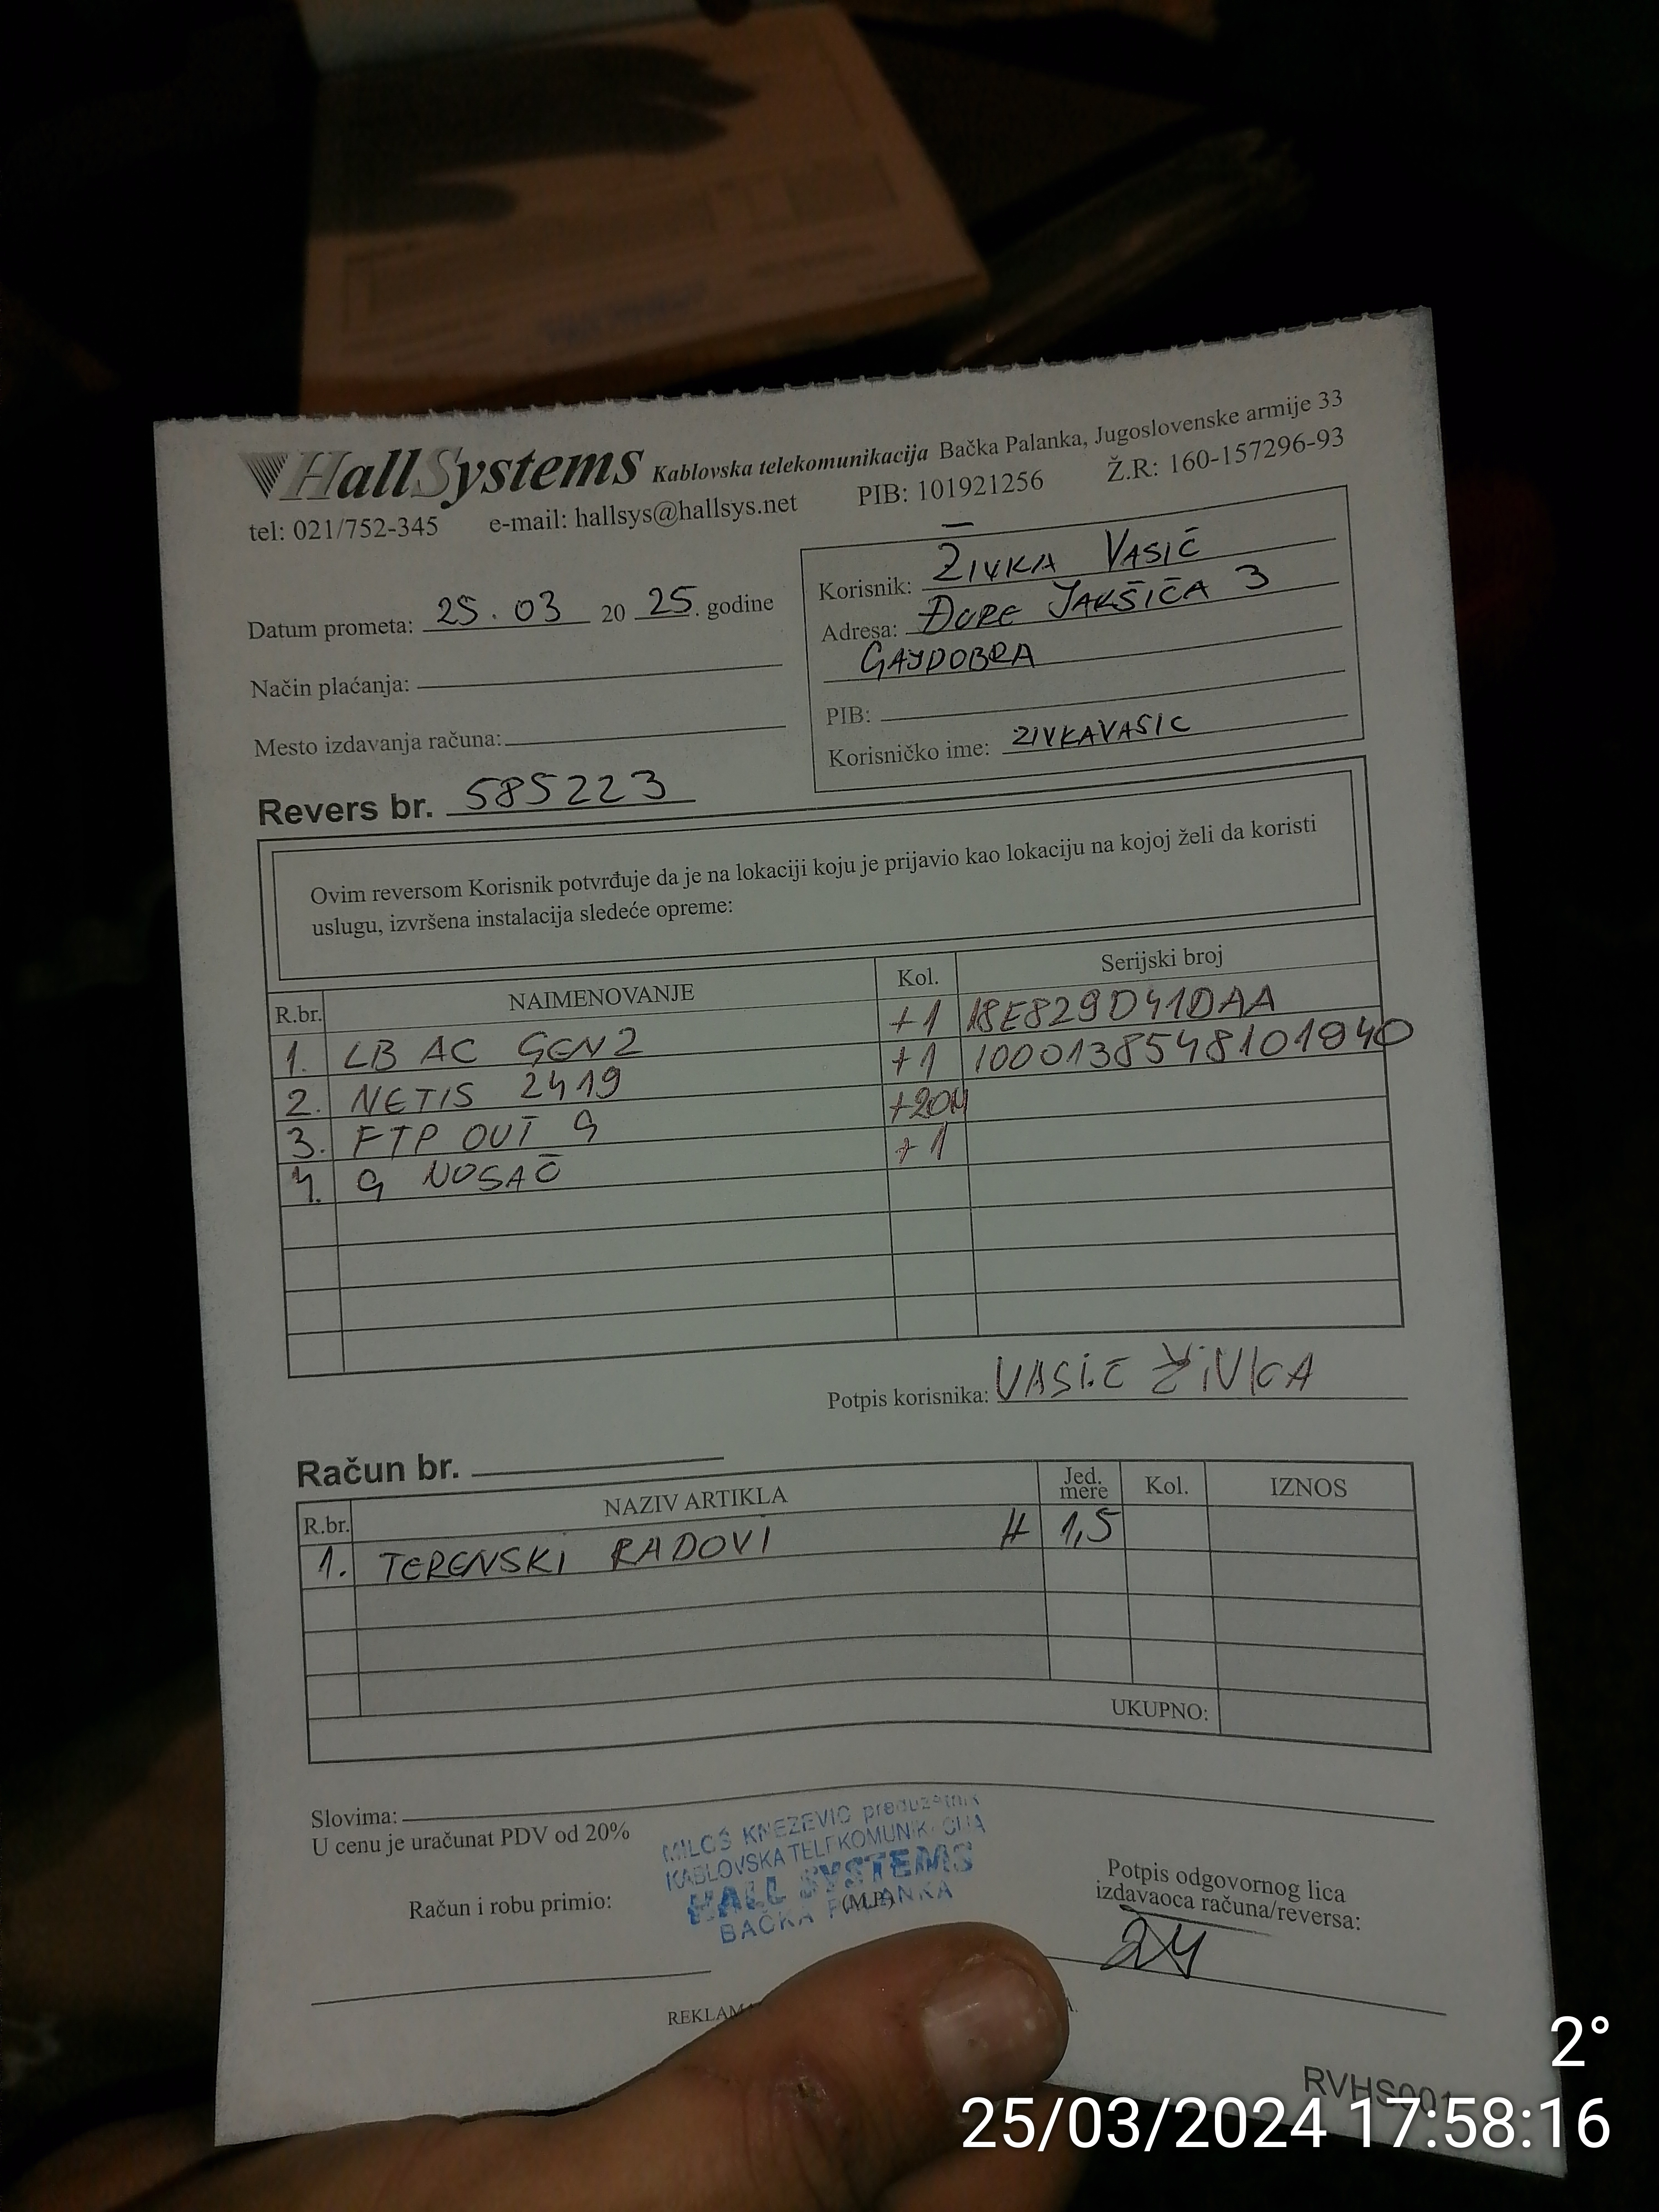 HallSystems Kablovska telekomunikacija Bačka Palanka, Jugoslovenske armije 33
tel: 021/752-345 e-mail: hallsys@hallsys.net PIB: 101921256 Ž.R: 160-157296-93
Datum prometa: 25.03 2025. godine
Način plaćanja:
Mesto izdavanja računa:
Revers br. 585223
Korisnik: ŽIVKA VASIĆ
Adresa: ĐURE JAKŠIĆA 3
GAJDOBRA
PIB:
Korisničko ime: ZIVKAVASIC
Ovim reversom Korisnik potvrđuje da je na lokaciji koju je prijavio kao lokaciju na kojoj želi da koristi
uslugu, izvršena instalacija sledeće opreme:
R.br. NAIMENOVANJE Kol. Serijski broj
1. LB AC GEN2 +1 18E829D41DAA
2. NETIS 2419 +1 1000138548101940
3. FTP OUT G +20M
4. G NOSAČ +1
Potpis korisnika: VASIĆ ŽIVKA
Račun br.
R.br. NAZIV ARTIKLA Jed. mere Kol. IZNOS
1. TERENSKI RADOVI H 1,5
UKUPNO:
Slovima:
U cenu je uračunat PDV od 20%
MILOŠ KNEŽEVIĆ preduzetnik
KABLOVSKA TELEKOMUNIKACIJA
HALL SYSTEMS
BAČKA PALANKA
Račun i robu primio: (M.P.)
Potpis odgovornog lica
izdavaoca računa/reversa:
RVHS001
2°
25/03/2024 17:58:16